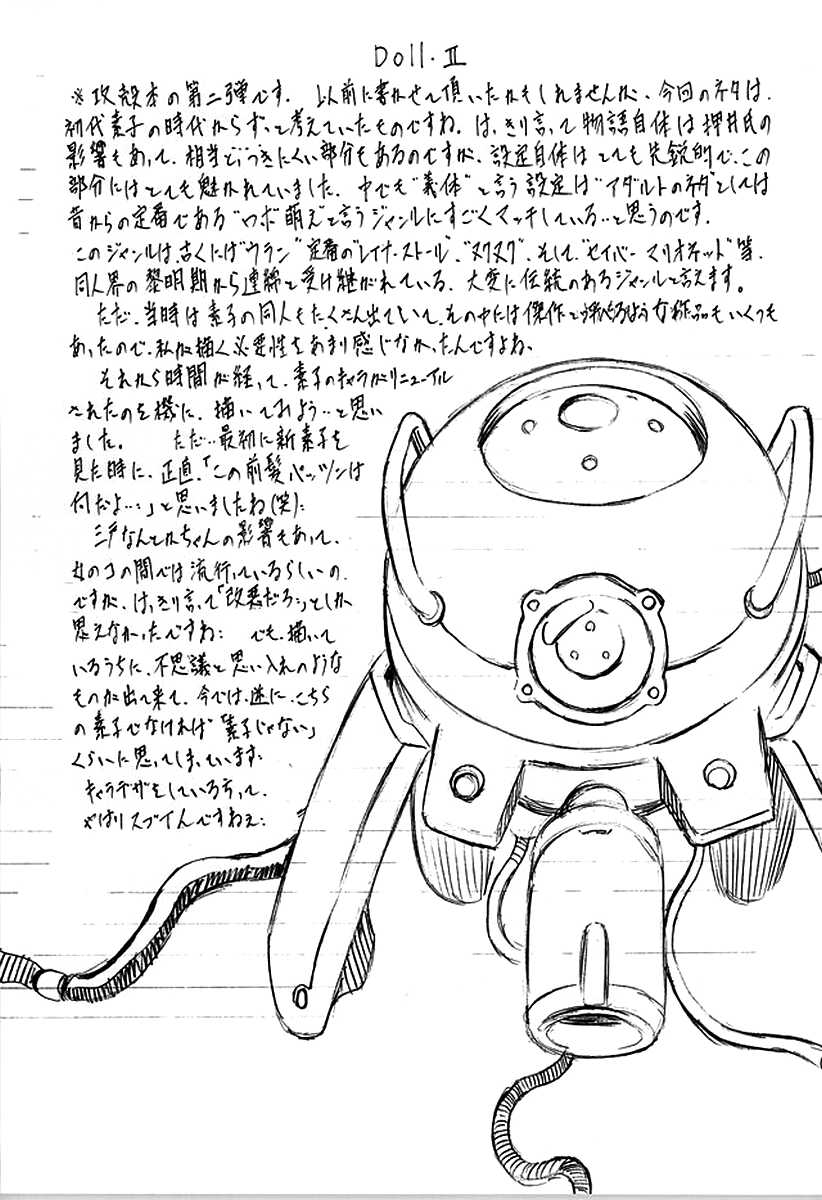 Doll・Ⅱ
※攻殻本の第二弾です。以前に書かせて頂いたかもしれませんが、今回のネタは、
初代素子の時代からずっと考えていたものですね。はっきり言って物語自体は押井氏の
影響もあって、相当とっつきにくい部分もあるのですが、設定自体はとても先鋭的で、この
部分にはとても魅かれていました。中でも"義体"と言う設定は"アダルトのネタ"としては
昔からの定番である"ロボ萌え"と言うジャンルにすごくマッチしている…と思うのです。
このジャンルは、古くには"ウラン"定番の"レイナ・ストール"、"ヌクヌク"、そして、"セイバーマリオネット"等、
同人界の黎明期から連綿と受け継がれている、大変に伝統のあるジャンルと言えます。
ただ、当時は素子の同人もたくさん出ていて、その中には傑作と呼べるような作品もいくつも
あったので、私が描く必要性をあまり感じなかったんですよね。
それから時間が経って、素子のキャラがリニューアル
されたのを機に、描いてみよう…と思い
ました。ただ…最初に新素子を
見た時に、正直、「この前髪パッツンは
何だよ…」と思いましたね(笑)
三戸なんとかちゃんの影響もあって、
女のコの間では流行っているらしいの
ですが、はっきり言って「改悪だろ…」としか
思えなかったですね でも、描いて
いるうちに、不思議と思い入れのような
ものが出て来て、今では、逆に、こちら
の素子でなければ「素子じゃない」
くらいに思ってしまっています
キャラデザをしている方って、
やはりスゴイんですねぇ